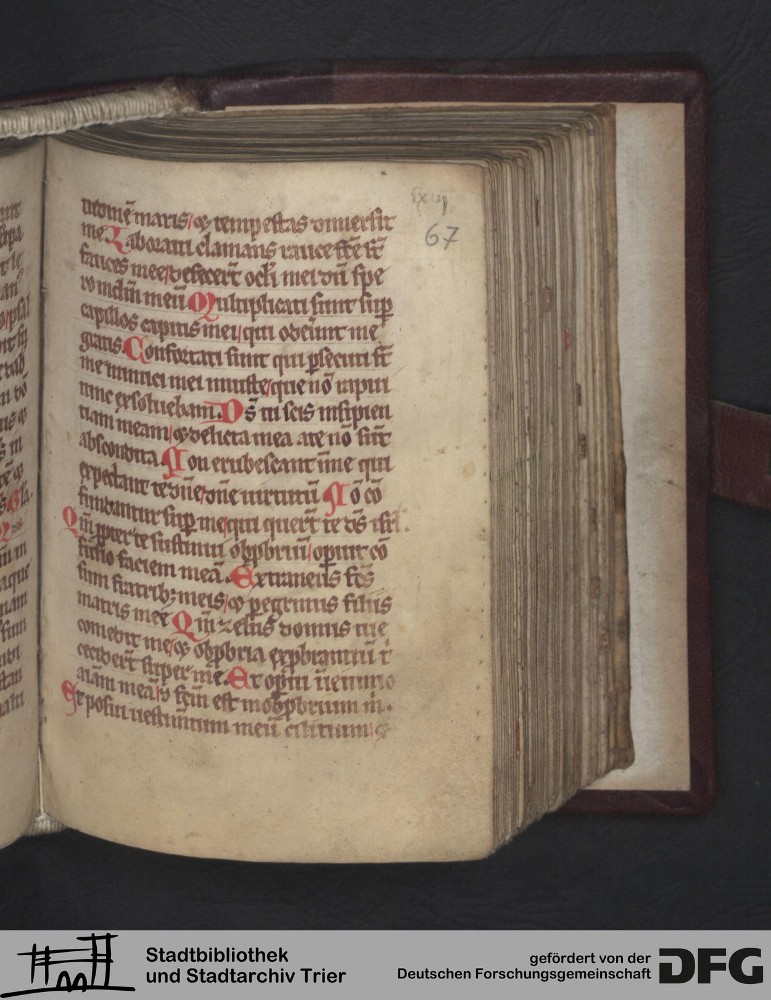 67
titudinē maris / ⁊ tempestas dimersit
me Laboraui clamans rauce fcē st̄
fauces mee / defecert̄ ocłi mei dū spe
ro in dm̄ meū Multiplicati sunt sup̄
capillos capitis mei / qui oderunt me
gratis Confortati sunt qui ꝑsecuti st̄
me inimici mei iniuste / que nō rapui
tunc exsoluebam. Ds̄ tu scis insipien
tiam meam / ⁊ delicta mea a te nō sūt
abscondita. Non erubescant ī me qui
expectant te dn̄e / dn̄e uirtutū Nō cō
fundantur sup̄ me / qui quer̄t te ds̄ isrł.
Qm̄ ꝓpter te sustinui obꝓbriū / opuit cō
fusio faciem meā. Extraneus fc̄s
sum fratrib; meis / ⁊ peregrinus filiis
matris mee Qm̄ zelus domus tue
comedit me / ⁊ obꝓbria exprobrantiū t̄
cecidert̄ super me. Et opui ī ieiunio
aīam meā / ⁊ fc̄m est ī obꝓbrium m̄.
Et posui uestimentum meū cilicium / ⁊
Stadtbibliothek
und Stadtarchiv Trier
gefördert von der
Deutschen Forschungsgemeinschaft
DFG